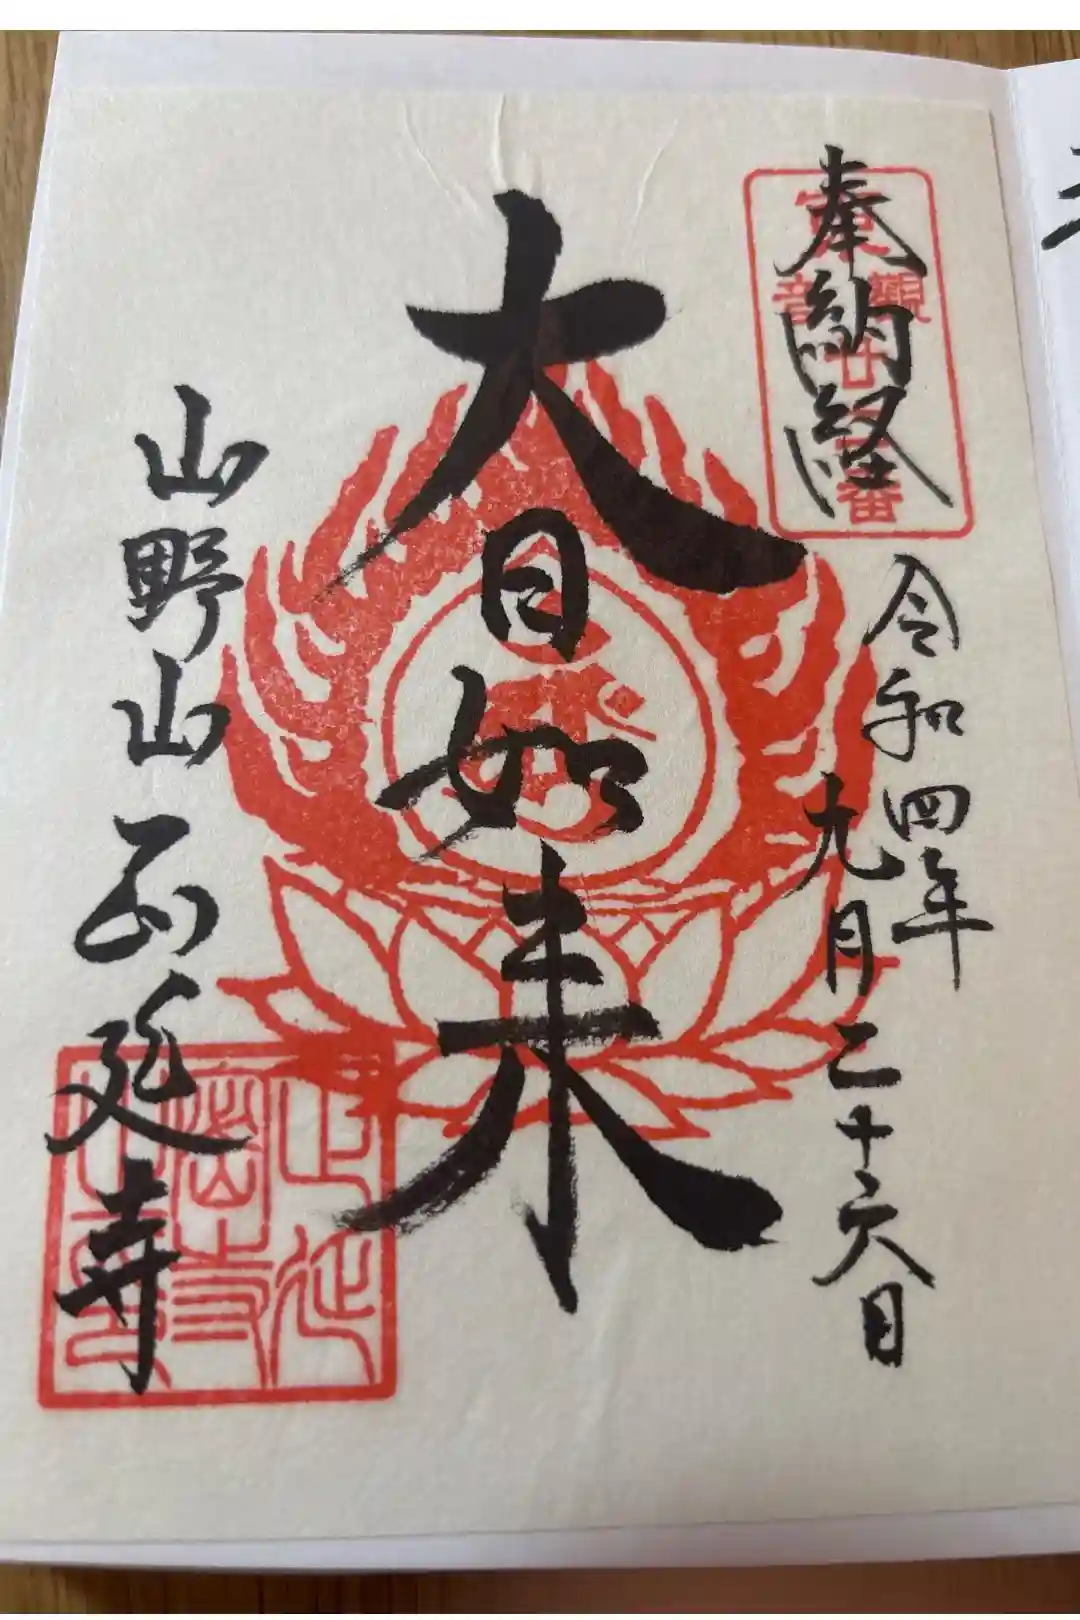 奉納経
令和四年
九月二十六日
大日如来
山野山正延寺
觀音